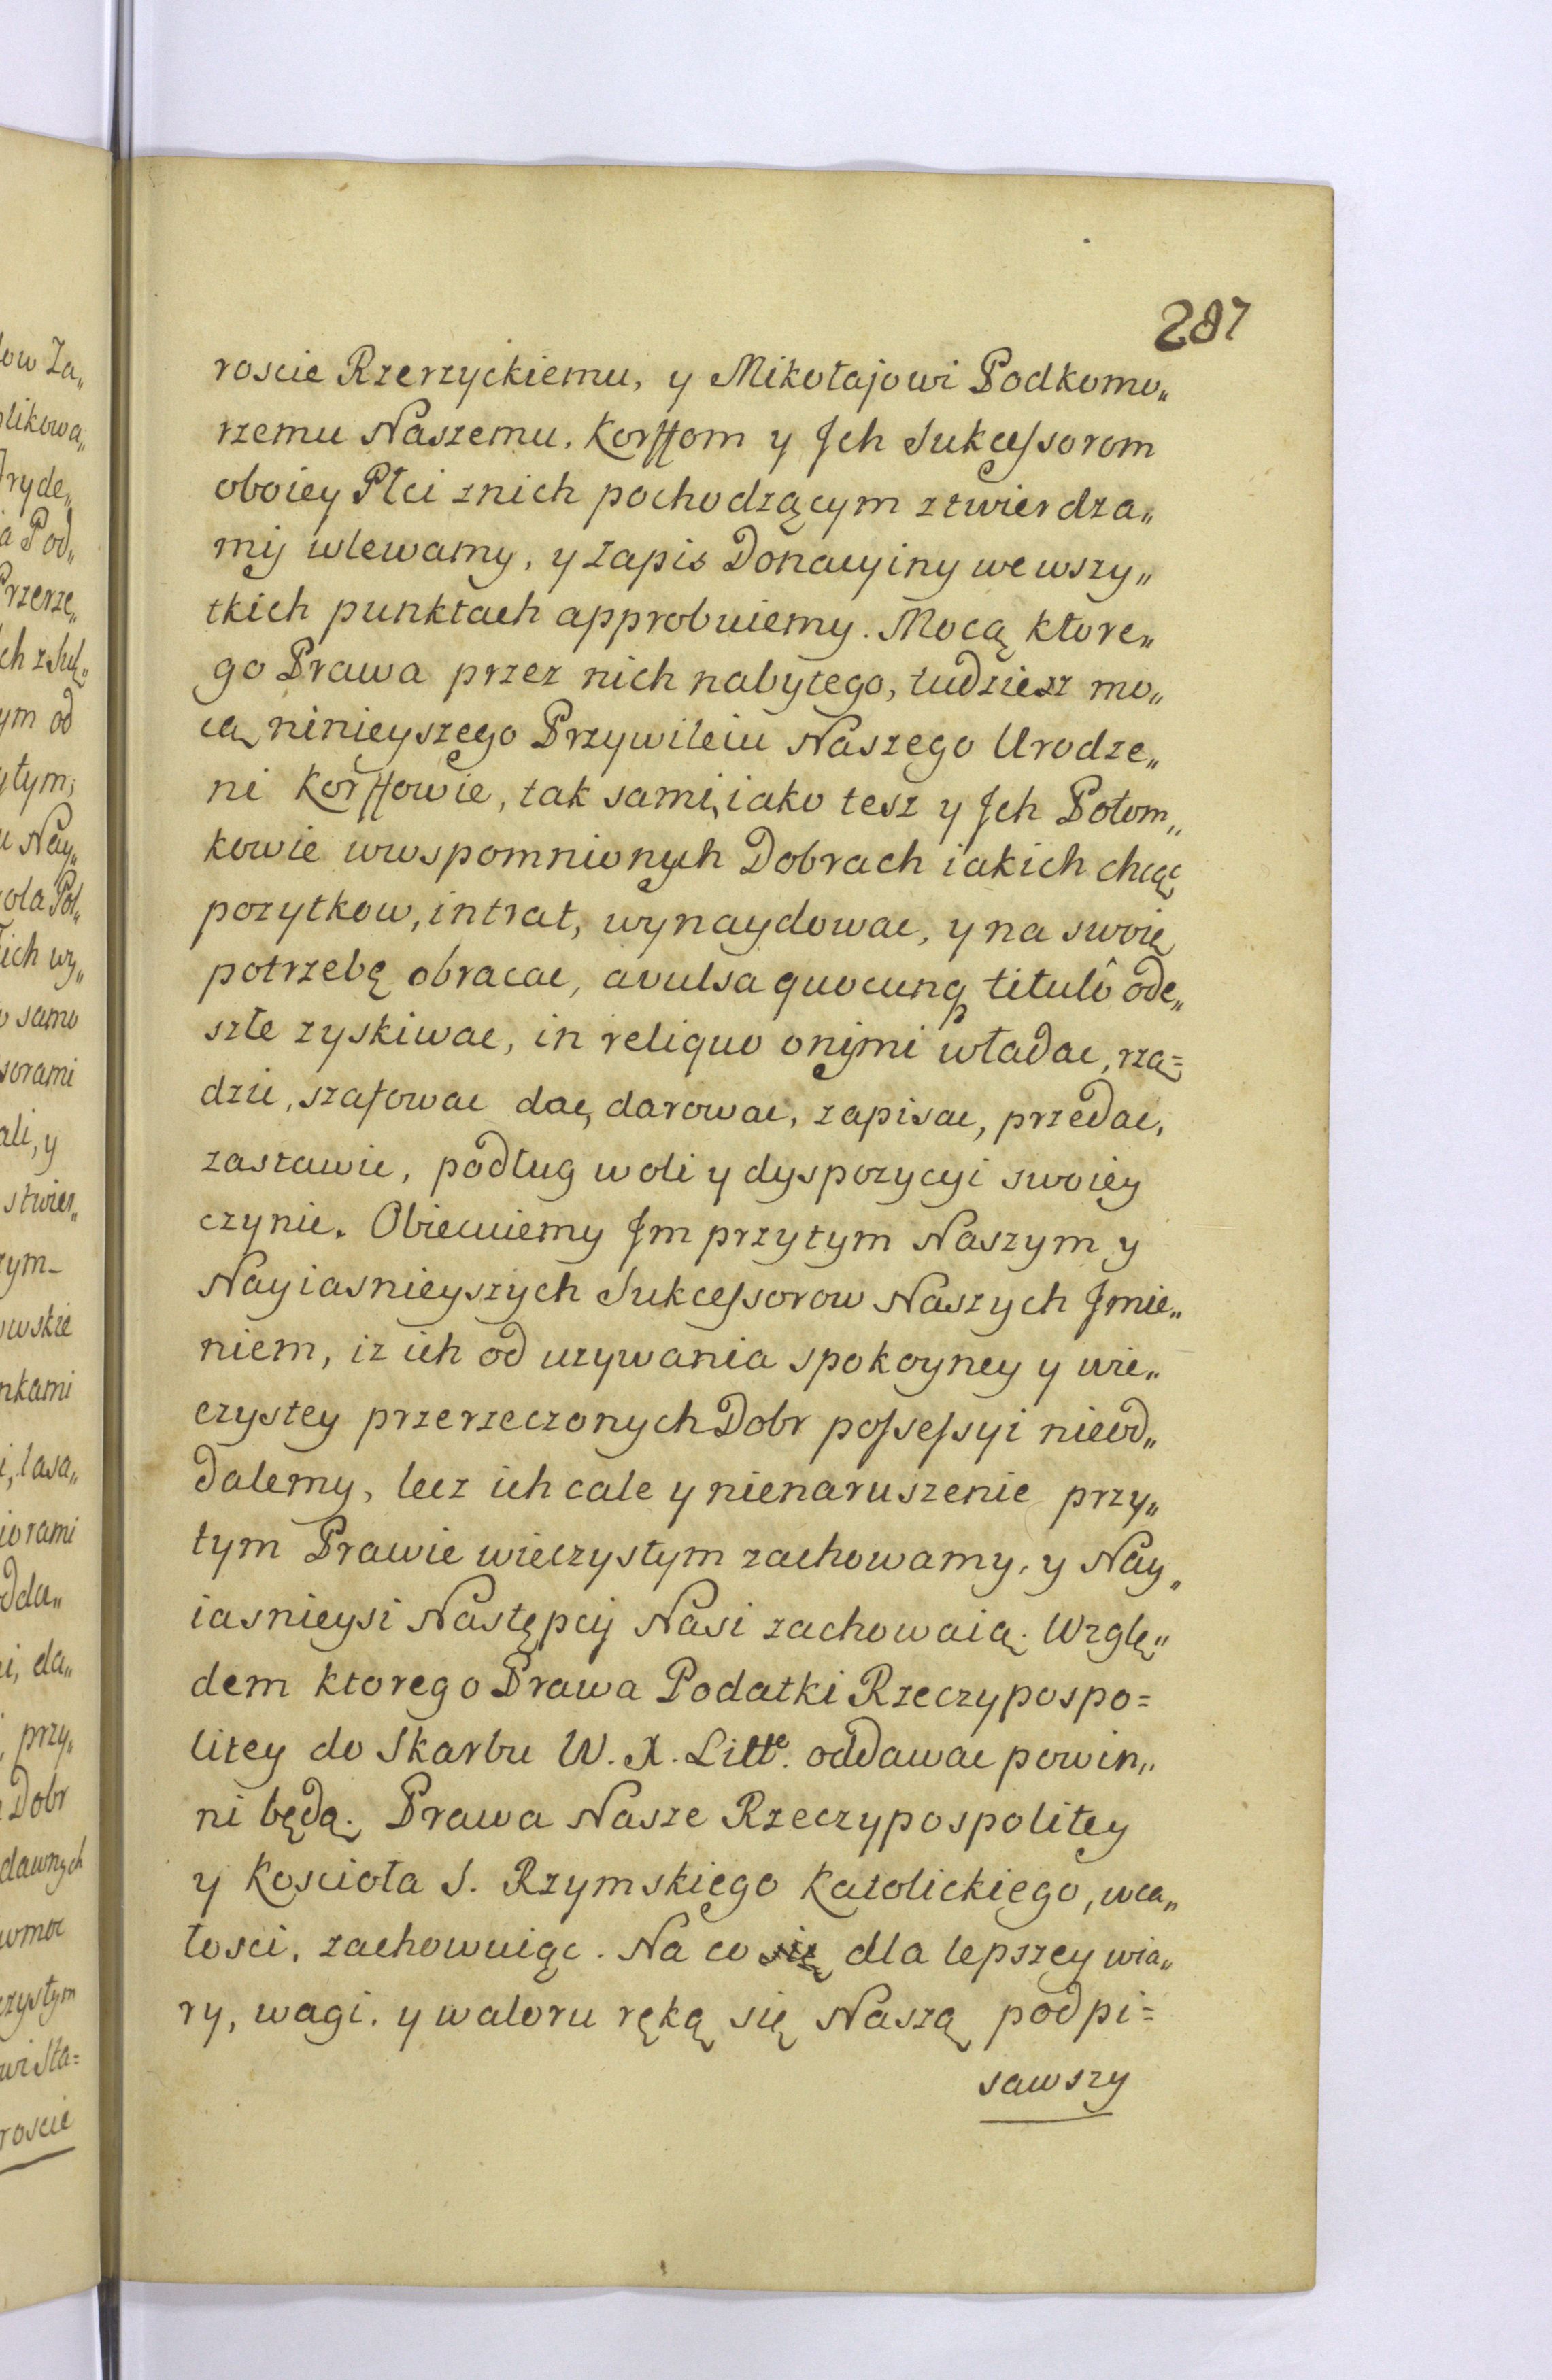 287
roscie Rzerzyckiemu, y Mikołajowi Podkomo„
rzemu Naszemu. Korffom y Jch Sukcessorom
oboiey Płci znich pochodzącym ztwierdza„
my wlewamy, y zapis Donacyiny we wszy„
tkich punktach approbuiemy. Mocą ktore„
go Prawa przez nich nabytego, tudziesz mo„
cą ninieyszego Przywileiu Naszego Urodze„
ni Korffowie, tak sami, iako tesz y Jch Potom„
kowie wwspomnionych Dobrach iakich chcąc
pozytkow, intrat, wynaydowac, y na swoię
potrzebę obracac, avulsa quocunq titulô ode„
szłe zyskiwac, in reliquo onymi władac, rzą=
dzic, szafowac dac, darowac, zapisac, przedac,
zastawic, podług woli y dyspozycyi swoiey
czynic. Obiecuiemy Jm przytym Naszym y
Nayiasnieyszych Sukcessorow Naszych Jmie„
niem, iz ich od uzywania spokoyney y wie„
czystey przerzeczonych Dobr possessyi nieod„
dalemy, lecz ich cale y nienaruszenie przy„
tym Prawie wieczystym zachowamy, y Nay„
iasnieysi Następcy Nasi zachowaią. Wzglę„
dem ktorego Prawa Podatki Rzeczypospo=
litey do Skarbu W. X. Litte. oddawac powin„
ni będą. Prawa Nasze Rzeczypospolitey
y Kosciola S. Rzymskiego Katolickiego, wca„
łosci, zachowuiąc. Na co się dla lepszey wia„
ry, wagi, y waloru ręką się Naszą podpi=
sawszy
ow Za„
likowa„
ryde„
a Pod„
Przerze„
ch z Suk„
ym od
ytym,
u Nay„
ola Pol„
ich wy„
o samo
sorami
ali, y
stwier„
zym_
owskie
nkami
i, lasa„
iorami
odda„
i, da„
, przy„
Dobr
dawnych
wmoc
zystym
wi Sta=
roscie